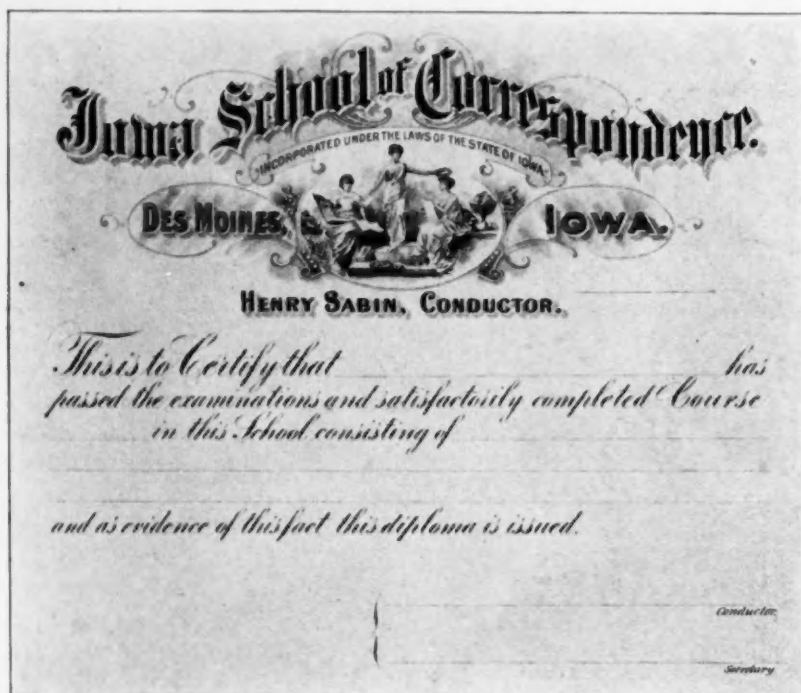 Iowa School of Correspondence.
INCORPORATED UNDER THE LAWS OF THE STATE OF IOWA
DES MOINES, IOWA.
HENRY SABIN, CONDUCTOR.
This is to Certify that has
passed the examinations and satisfactorily completed Course
in this School consisting of
and as evidence of this fact this diploma is issued.
Conductor.
Secretary